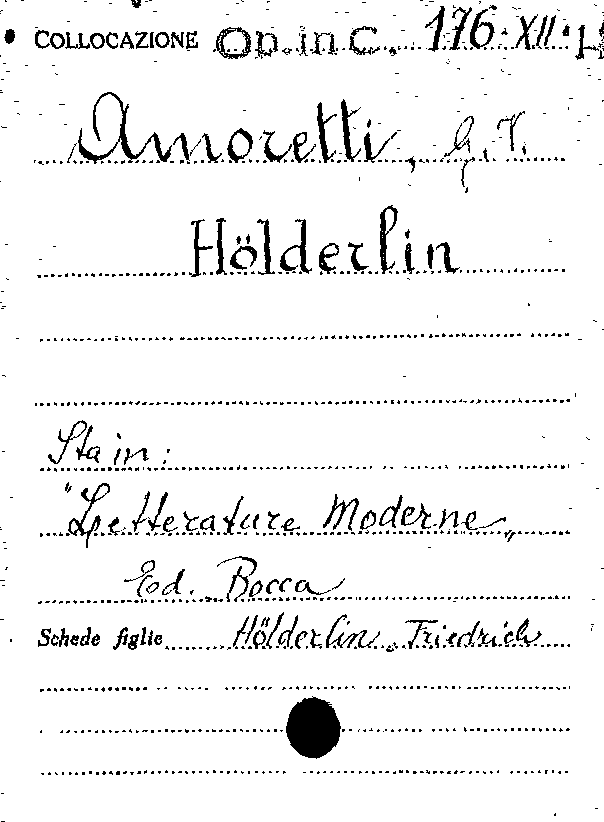 COLLOCAZIONE Op. in C. 176. XII. H
Amoretti, G. V.
Hölderlin
Sta in:
"Letterature Moderne„
Ed. Bocca
Schede figlie Hölderlin, Friedrich